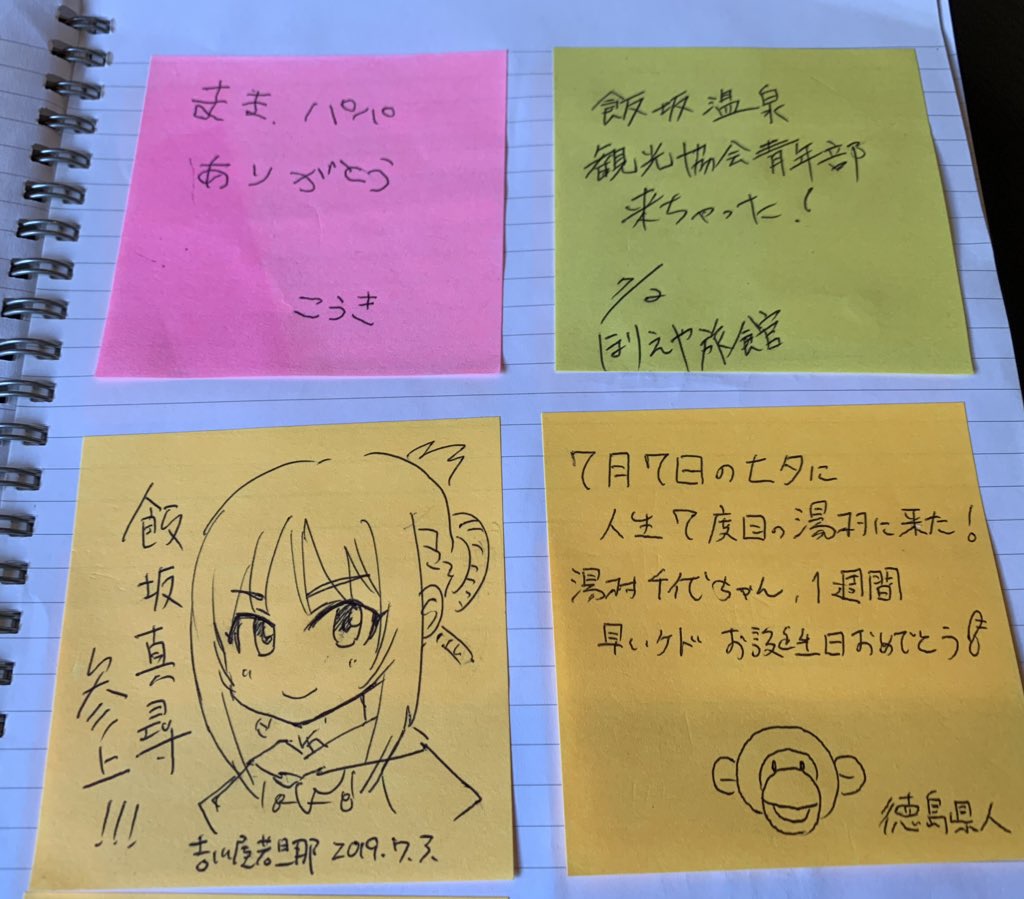 まま、パパ
ありがとう
こうき
飯坂温泉
観光協会青年部
来ちゃった!
7/2
ほりえや旅館
飯坂真尋
参上!!!
吉川屋若旦那 2019.7.3.
7月7日の七夕に
人生7度目の湯村に来た!
湯村千代ちゃん、1週間
早いケド お誕生日おめでとう
徳島県人